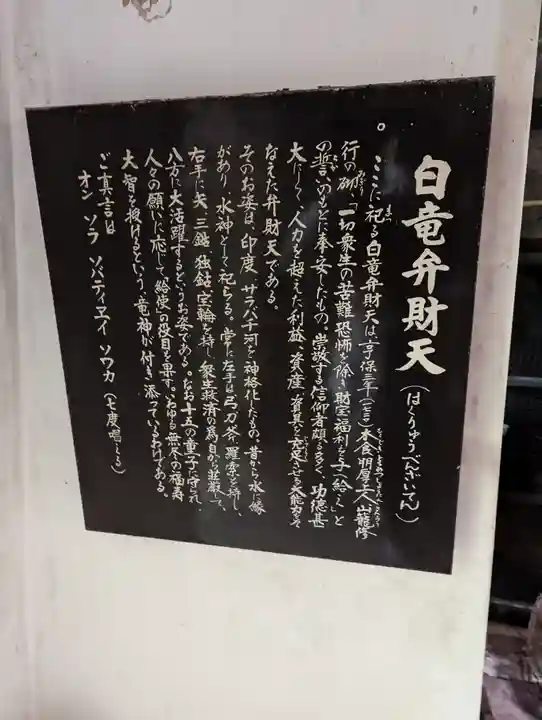 白竜弁財天(はくりゅうべんざいてん)
。ここに祀る白竜弁財天は、享保三年(七三)木食明厚上人山籠修
行の砌「一切衆生の苦難恐怖を除き財宝福利を与へ給へ」と
の誓いのもとに奉安したもの。崇敬する信仰者頗る多く、功徳甚
大にして、人力を超えた利益、資産、資具を充足させる大能力をそ
なえた弁財天である。
そのお姿は、印度、サラバチ河を神格化したもの、昔から水に縁
があり、水神として祀らる。常に左手は弓、刀、斧、羂索を持し、
右手に矢、三鈷、独鈷、宝輪を持し、衆生救済の為自から荘厳して、
八方に大活躍するというお姿である。なお十五の童子に守られ、
人々の願いに応じて、給使の役目を果す。いわゆる無尽の福寿
大智を授けるという、竜神が付き添っているわけである。
ご真言は
オン ソラ ソバティエイ ソワカ(七度唱える)